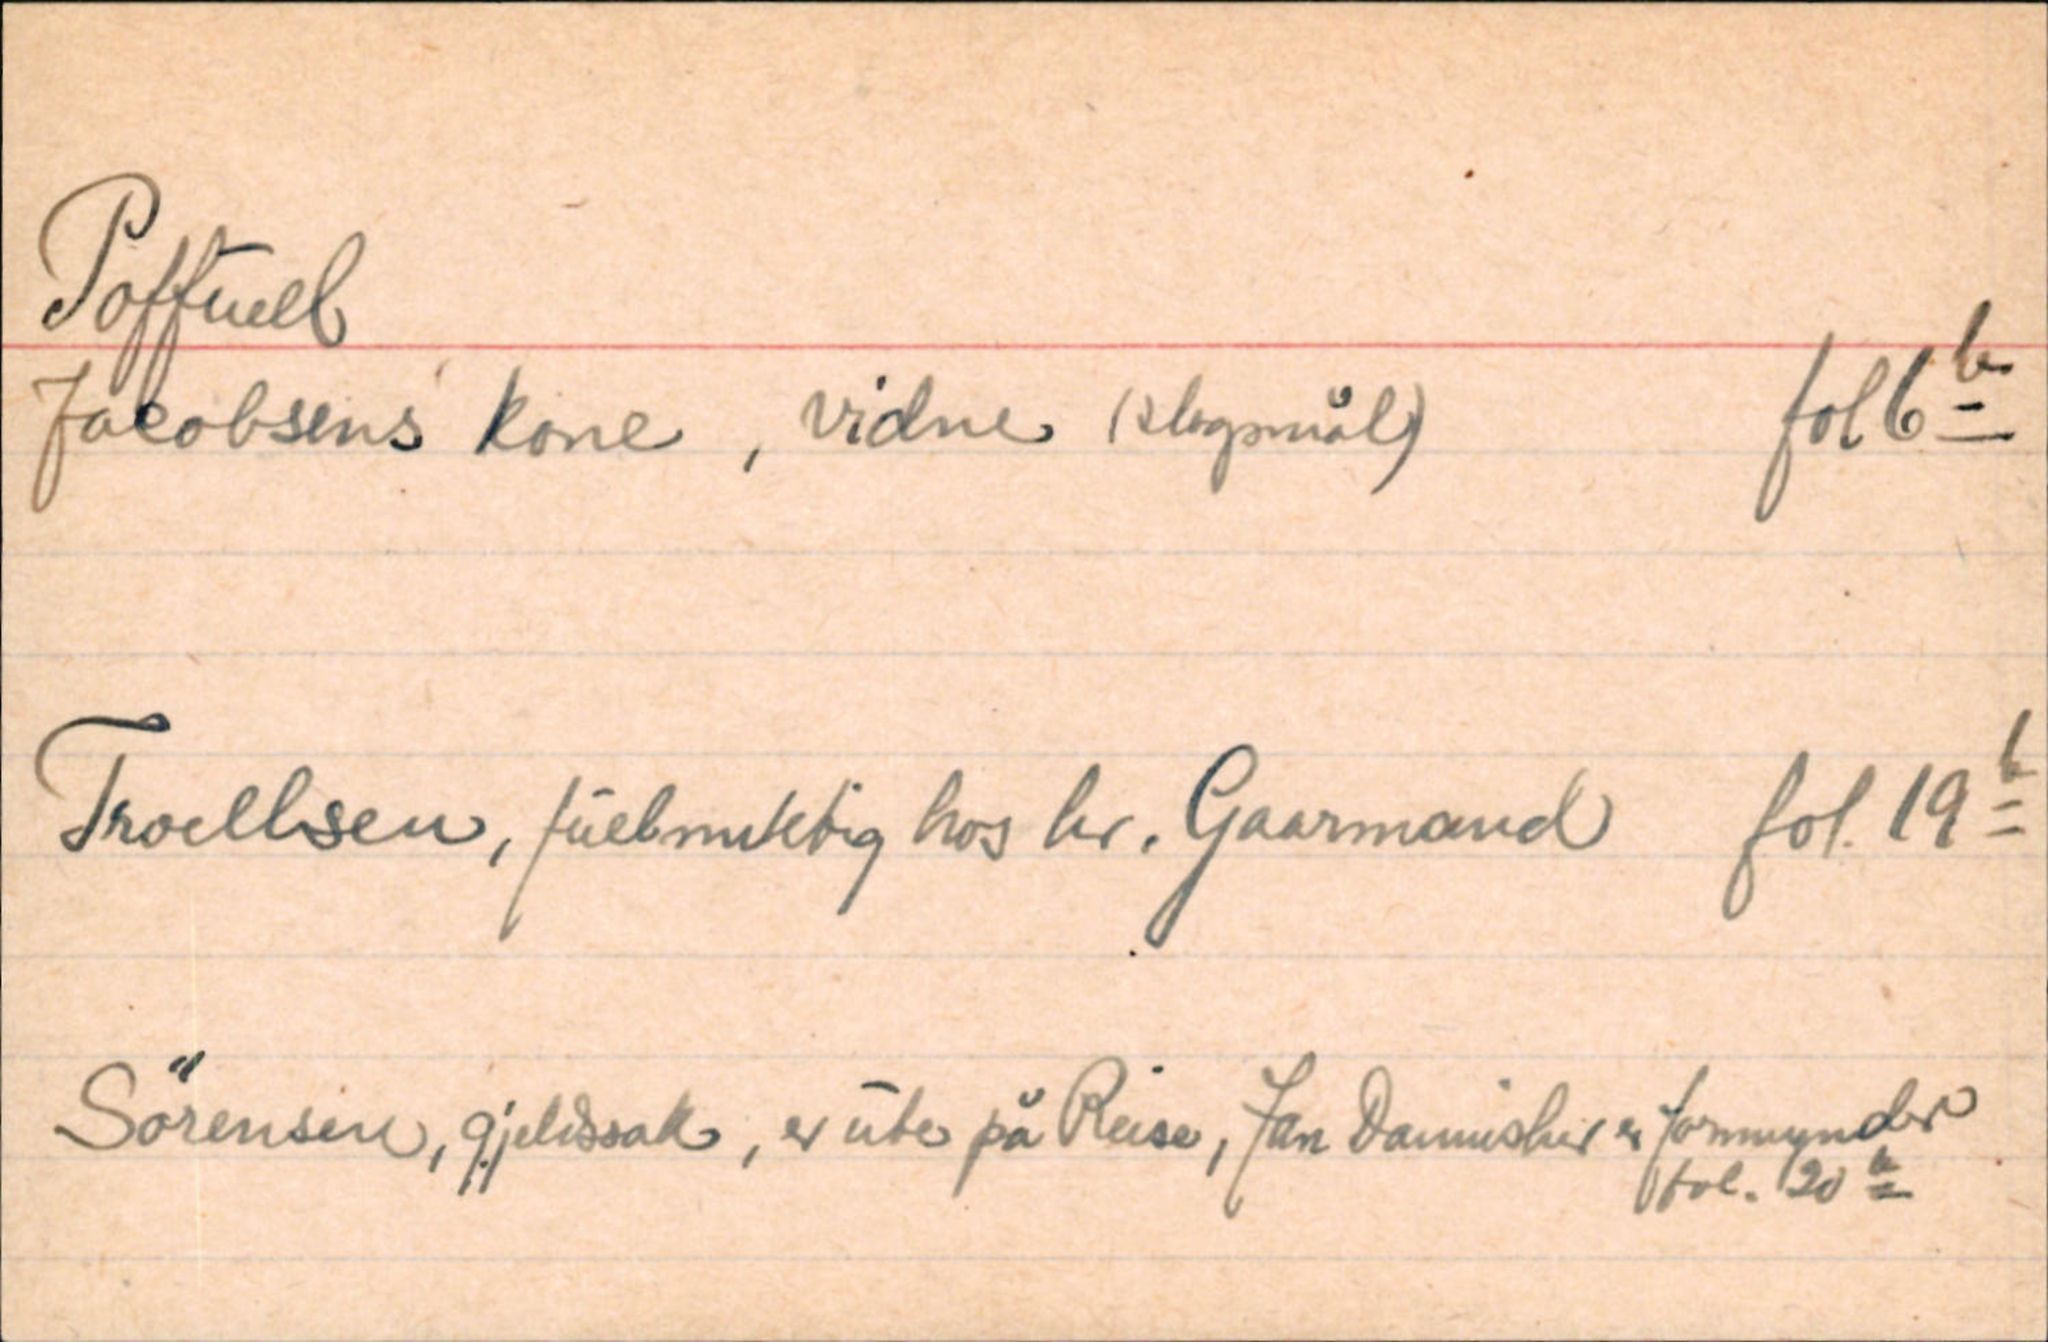 Poffuell
Jacobsens kone, vidne (slagsmål) fol 6 b
Troellsen, fuelmektig hos hr. Gaarmand fol. 19 b
Sörensen, gjeldssak, er ute på Reise, Jan Dannisher er formynder
fol. 20 b